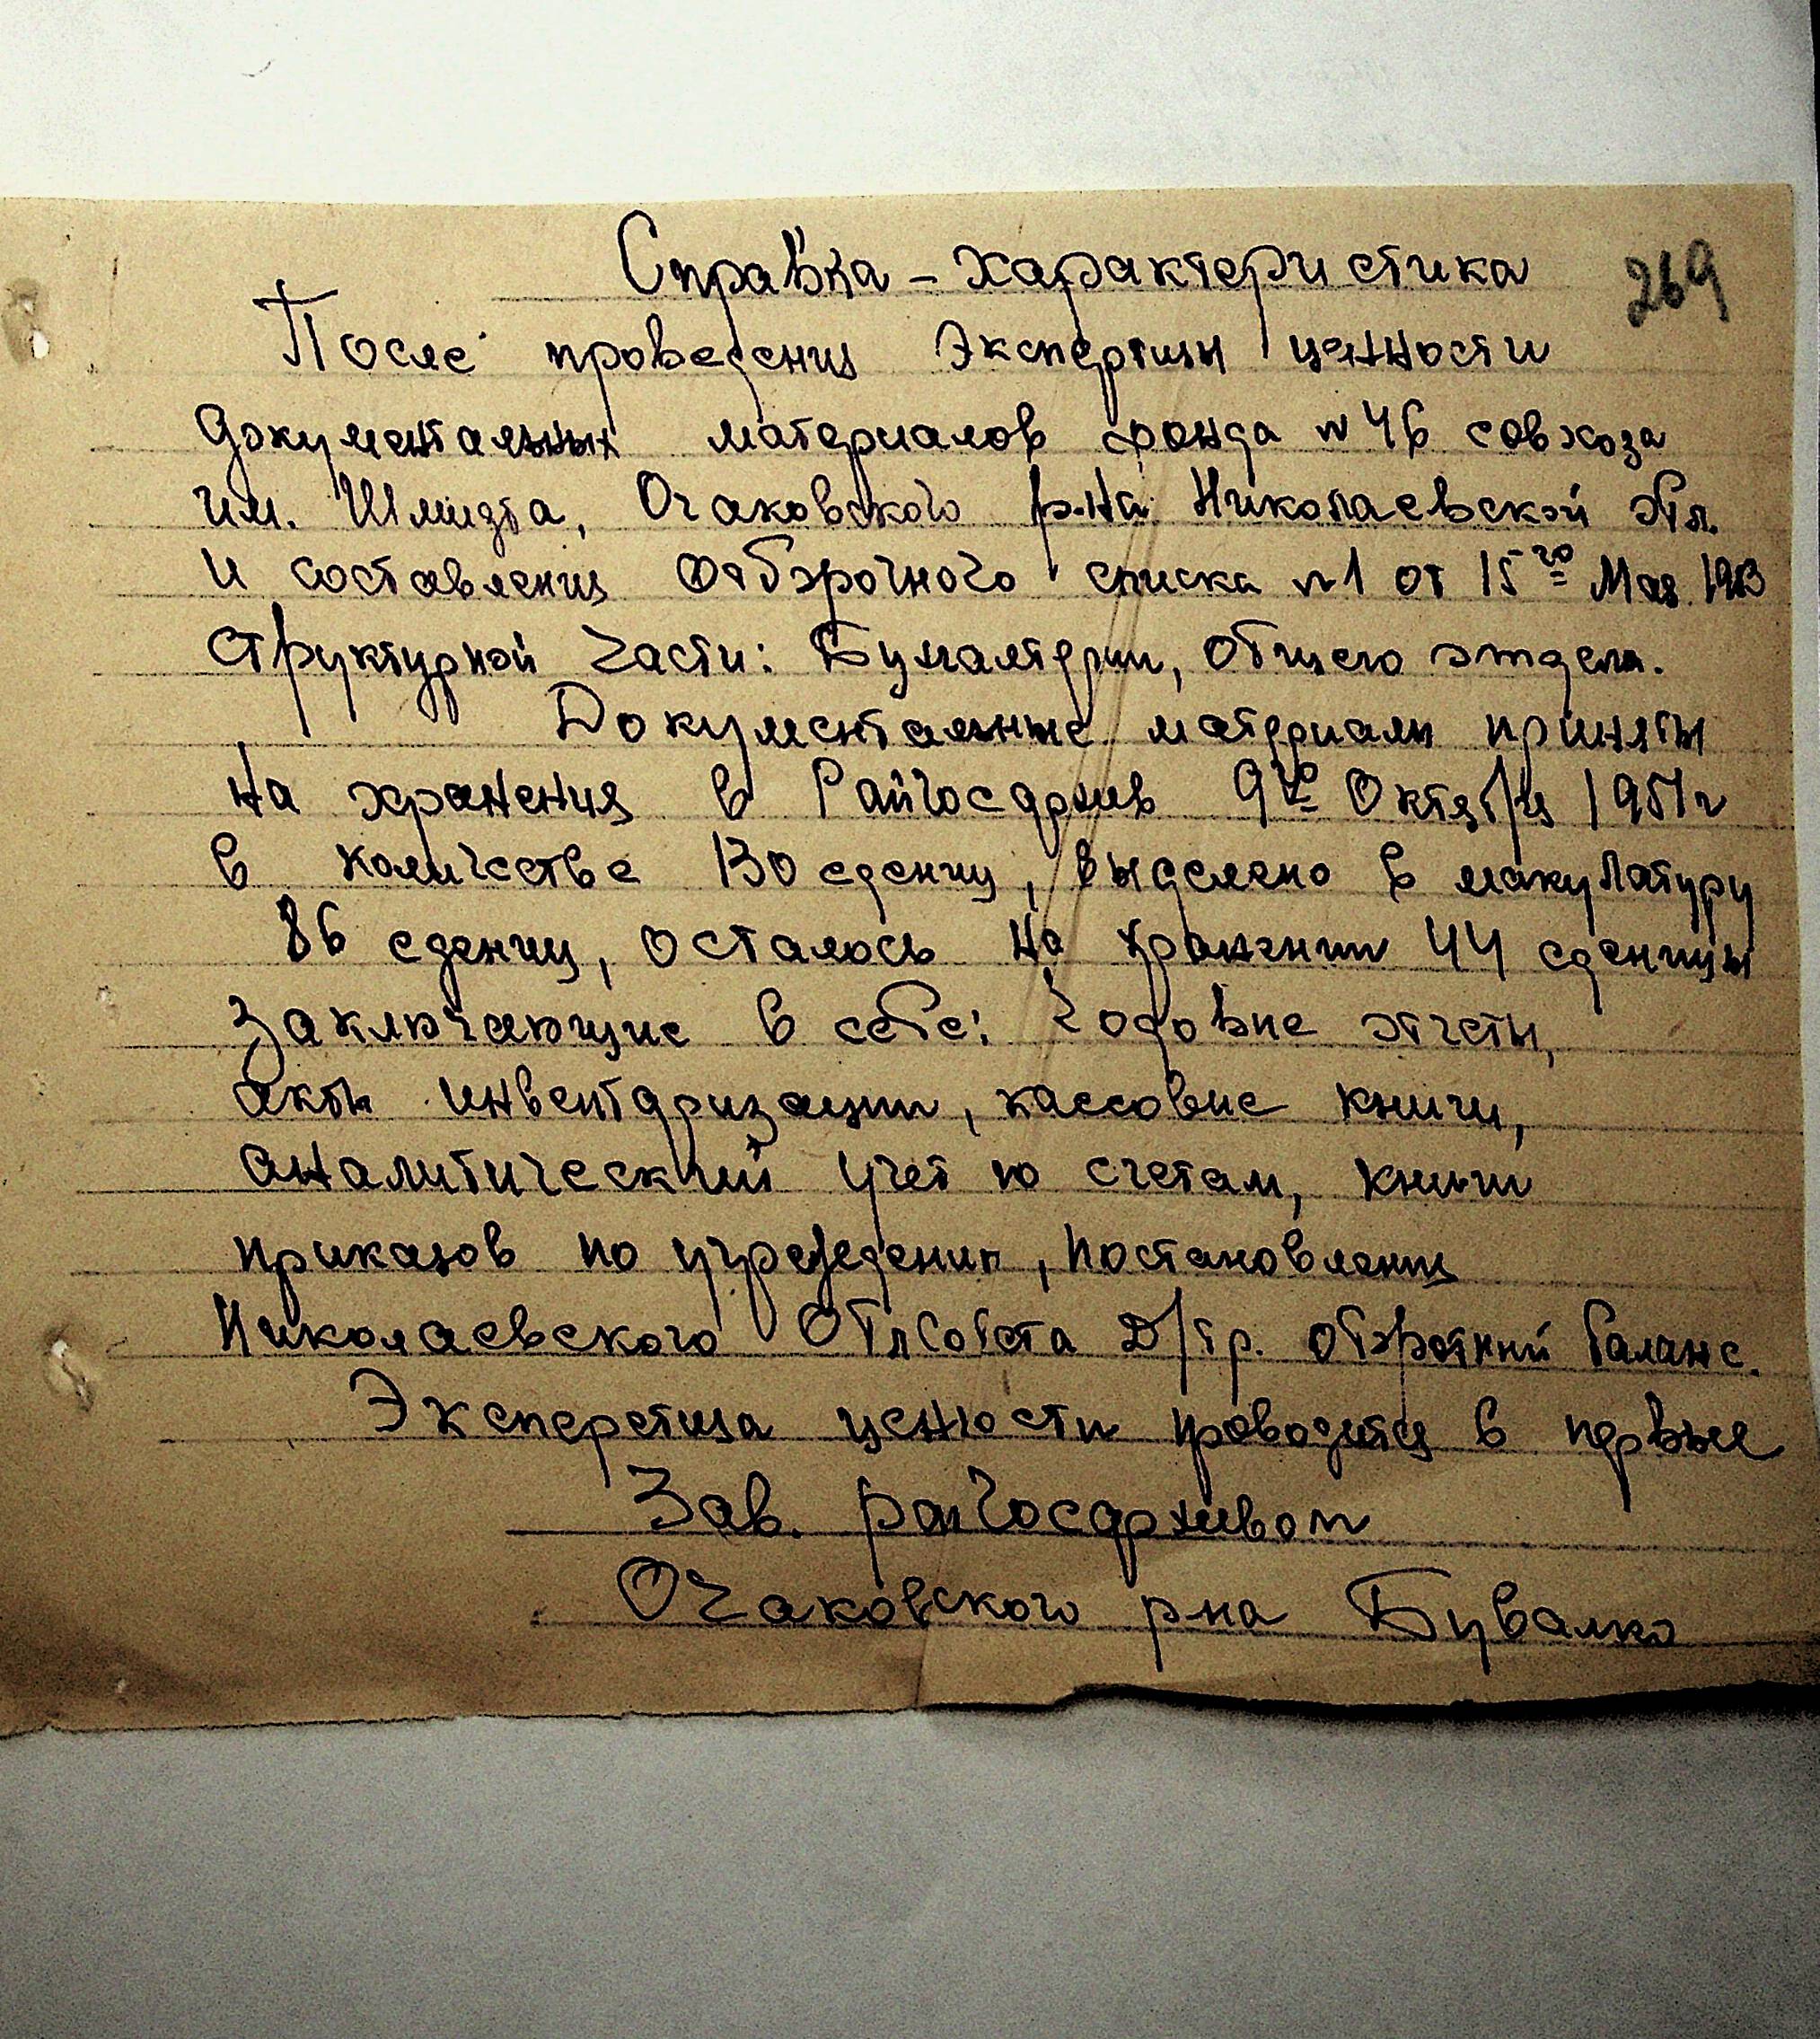 Справка - характеристика
269
После проведения экспертизы ценности
документальных материалов фонда №46 совхоза
им. Шмидта, Очаковского р-на Николаевской обл.
и составления отборочного списка №1 от 15го Мая
структурной части: Бухгалтерии, общего отдела.
Документальные материалы приняты
на хранения в Райгосархив 9го Октября 1951г
в количестве 130 едениц, выделено в макулатуру
86 едениц, осталось на хранении 44 еденицы
заключающие в себе: годовые отчеты,
акты инвентаризации, кассовые книги,
аналитический учет по счетам, книги
приказов по учреждению, постановления
Николаевского ОблСовета Д/тр. оборотный баланс.
Эксперетиза ценности проводится в первые
Зав. райгосархивом
Очаковского р-на Бувалко